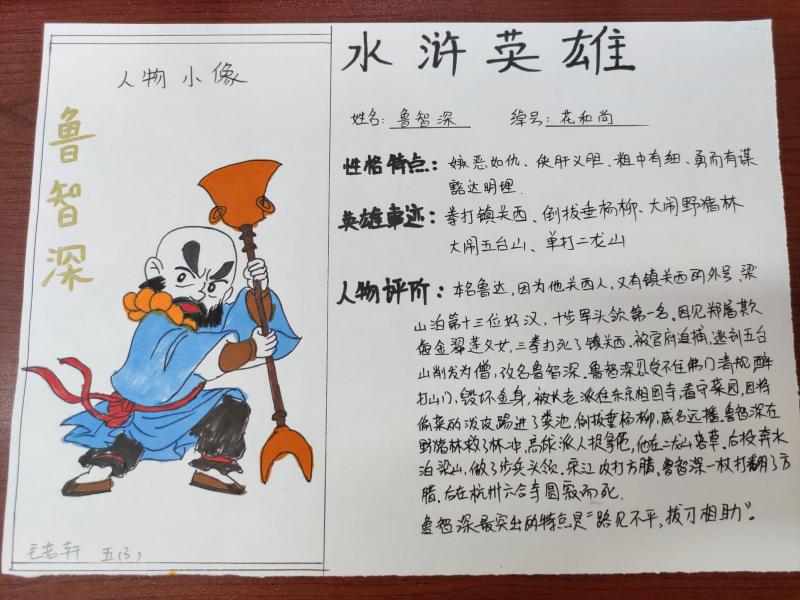 人物小像
鲁智深
毛若轩 五(3)
水浒英雄
姓名:鲁智深 绰号:花和尚
性格特点:嫉恶如仇、侠肝义胆、粗中有细、勇而有谋
豁达明理.
英雄事迹:拳打镇关西、倒拔垂杨柳、大闹野猪林
大闹五台山、单打二龙山
人物评价:本名鲁达,因为他关西人,又有镇关西的外号,梁
山泊第十三位好汉,十步军头领第一名.因见郑屠欺
侮金翠莲父女,三拳打死了镇关西.被官府追捕,逃到五台
山削发为僧,改名鲁智深.鲁智深忍受不住佛门清规,醉
打山门,毁坏金身,被长老派往东京相国寺,看守菜园,因将
偷菜的泼皮踢进了粪池,倒拔垂杨柳,威名远播.鲁智深在
野猪林救了林冲,高俅派人捉拿他,他在二龙山落草.后投奔水
泊梁山,做了步兵头领.宋江攻打方腊,鲁智深一杖打翻了方
腊.后在杭州六合寺圆寂而死.
鲁智深最突出的特点是“路见不平,拔刀相助”。